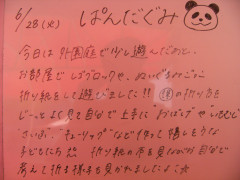 6/28(火) ぱんだぐみ
今日は外園庭で少し遊んだあと、
お部屋でレゴブロックや、ぬいぐるみごっこ
折り紙をして遊びました!! の折り方を
じーっとよく見て自分で上手に "おばけ" や
"さいふ" "チューリップ" などを作って嬉しそうな
子どもたち 折り紙の本を見ながら自分で
考えて折る様子も見かれましたよ☆